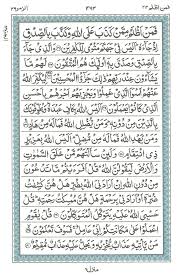 فمن اظلم ٢٤
الزمر ٣٩
فَمَنْ اَظْلَمُ مِمَّنْ كَذَبَ عَلَى اللّٰهِ وَكَذَّبَ بِالصِّدْقِ
اِذْ جَآءَهٗ اَلَيْسَ فِيْ جَهَنَّمَ مَثْوًى لِّلْكٰفِرِيْنَ وَالَّذِيْ جَآءَ
بِالصِّدْقِ وَصَدَّقَ بِهٖٓ اُولٰٓئِكَ هُمُ الْمُتَّقُوْنَ لَهُمْ مَّا يَشَآءُوْنَ
عِنْدَ رَبِّهِمْ ذٰلِكَ جَزٰٓؤُا الْمُحْسِنِيْنَ لِيُكَفِّرَ اللّٰهُ
عَنْهُمْ اَسْوَاَ الَّذِيْ عَمِلُوْا وَيَجْزِيَهُمْ اَجْرَهُمْ بِاَحْسَنِ
الَّذِيْ كَانُوْا يَعْمَلُوْنَ اَلَيْسَ اللّٰهُ بِكَافٍ عَبْدَهٗ وَيُخَوِّفُوْنَكَ
بِالَّذِيْنَ مِنْ دُوْنِهٖ وَمَنْ يُّضْلِلِ اللّٰهُ فَمَا لَهٗ مِنْ هَادٍ
وَمَنْ يَّهْدِ اللّٰهُ فَمَا لَهٗ مِنْ مُّضِلٍّ اَلَيْسَ اللّٰهُ بِعَزِيْزٍ
ذِي انْتِقَامٍ وَلَئِنْ سَاَلْتَهُمْ مَّنْ خَلَقَ السَّمٰوٰتِ
وَالْاَرْضَ لَيَقُوْلُنَّ اللّٰهُ قُلْ اَفَرَءَيْتُمْ مَّا تَدْعُوْنَ مِنْ
دُوْنِ اللّٰهِ اِنْ اَرَادَنِيَ اللّٰهُ بِضُرٍّ هَلْ هُنَّ كٰشِفٰتُ
ضُرِّهٖٓ اَوْ اَرَادَنِيْ بِرَحْمَةٍ هَلْ هُنَّ مُمْسِكٰتُ رَحْمَتِهٖ قُلْ
حَسْبِيَ اللّٰهُ عَلَيْهِ يَتَوَكَّلُ الْمُتَوَكِّلُوْنَ قُلْ يٰقَوْمِ
اعْمَلُوْا عَلٰى مَكَانَتِكُمْ اِنِّيْ عَامِلٌ فَسَوْفَ تَعْلَمُوْنَ
مَنْ يَّاْتِيْهِ عَذَابٌ يُّخْزِيْهِ وَيَحِلُّ عَلَيْهِ عَذَابٌ مُّقِيْمٌ
منزل ٦